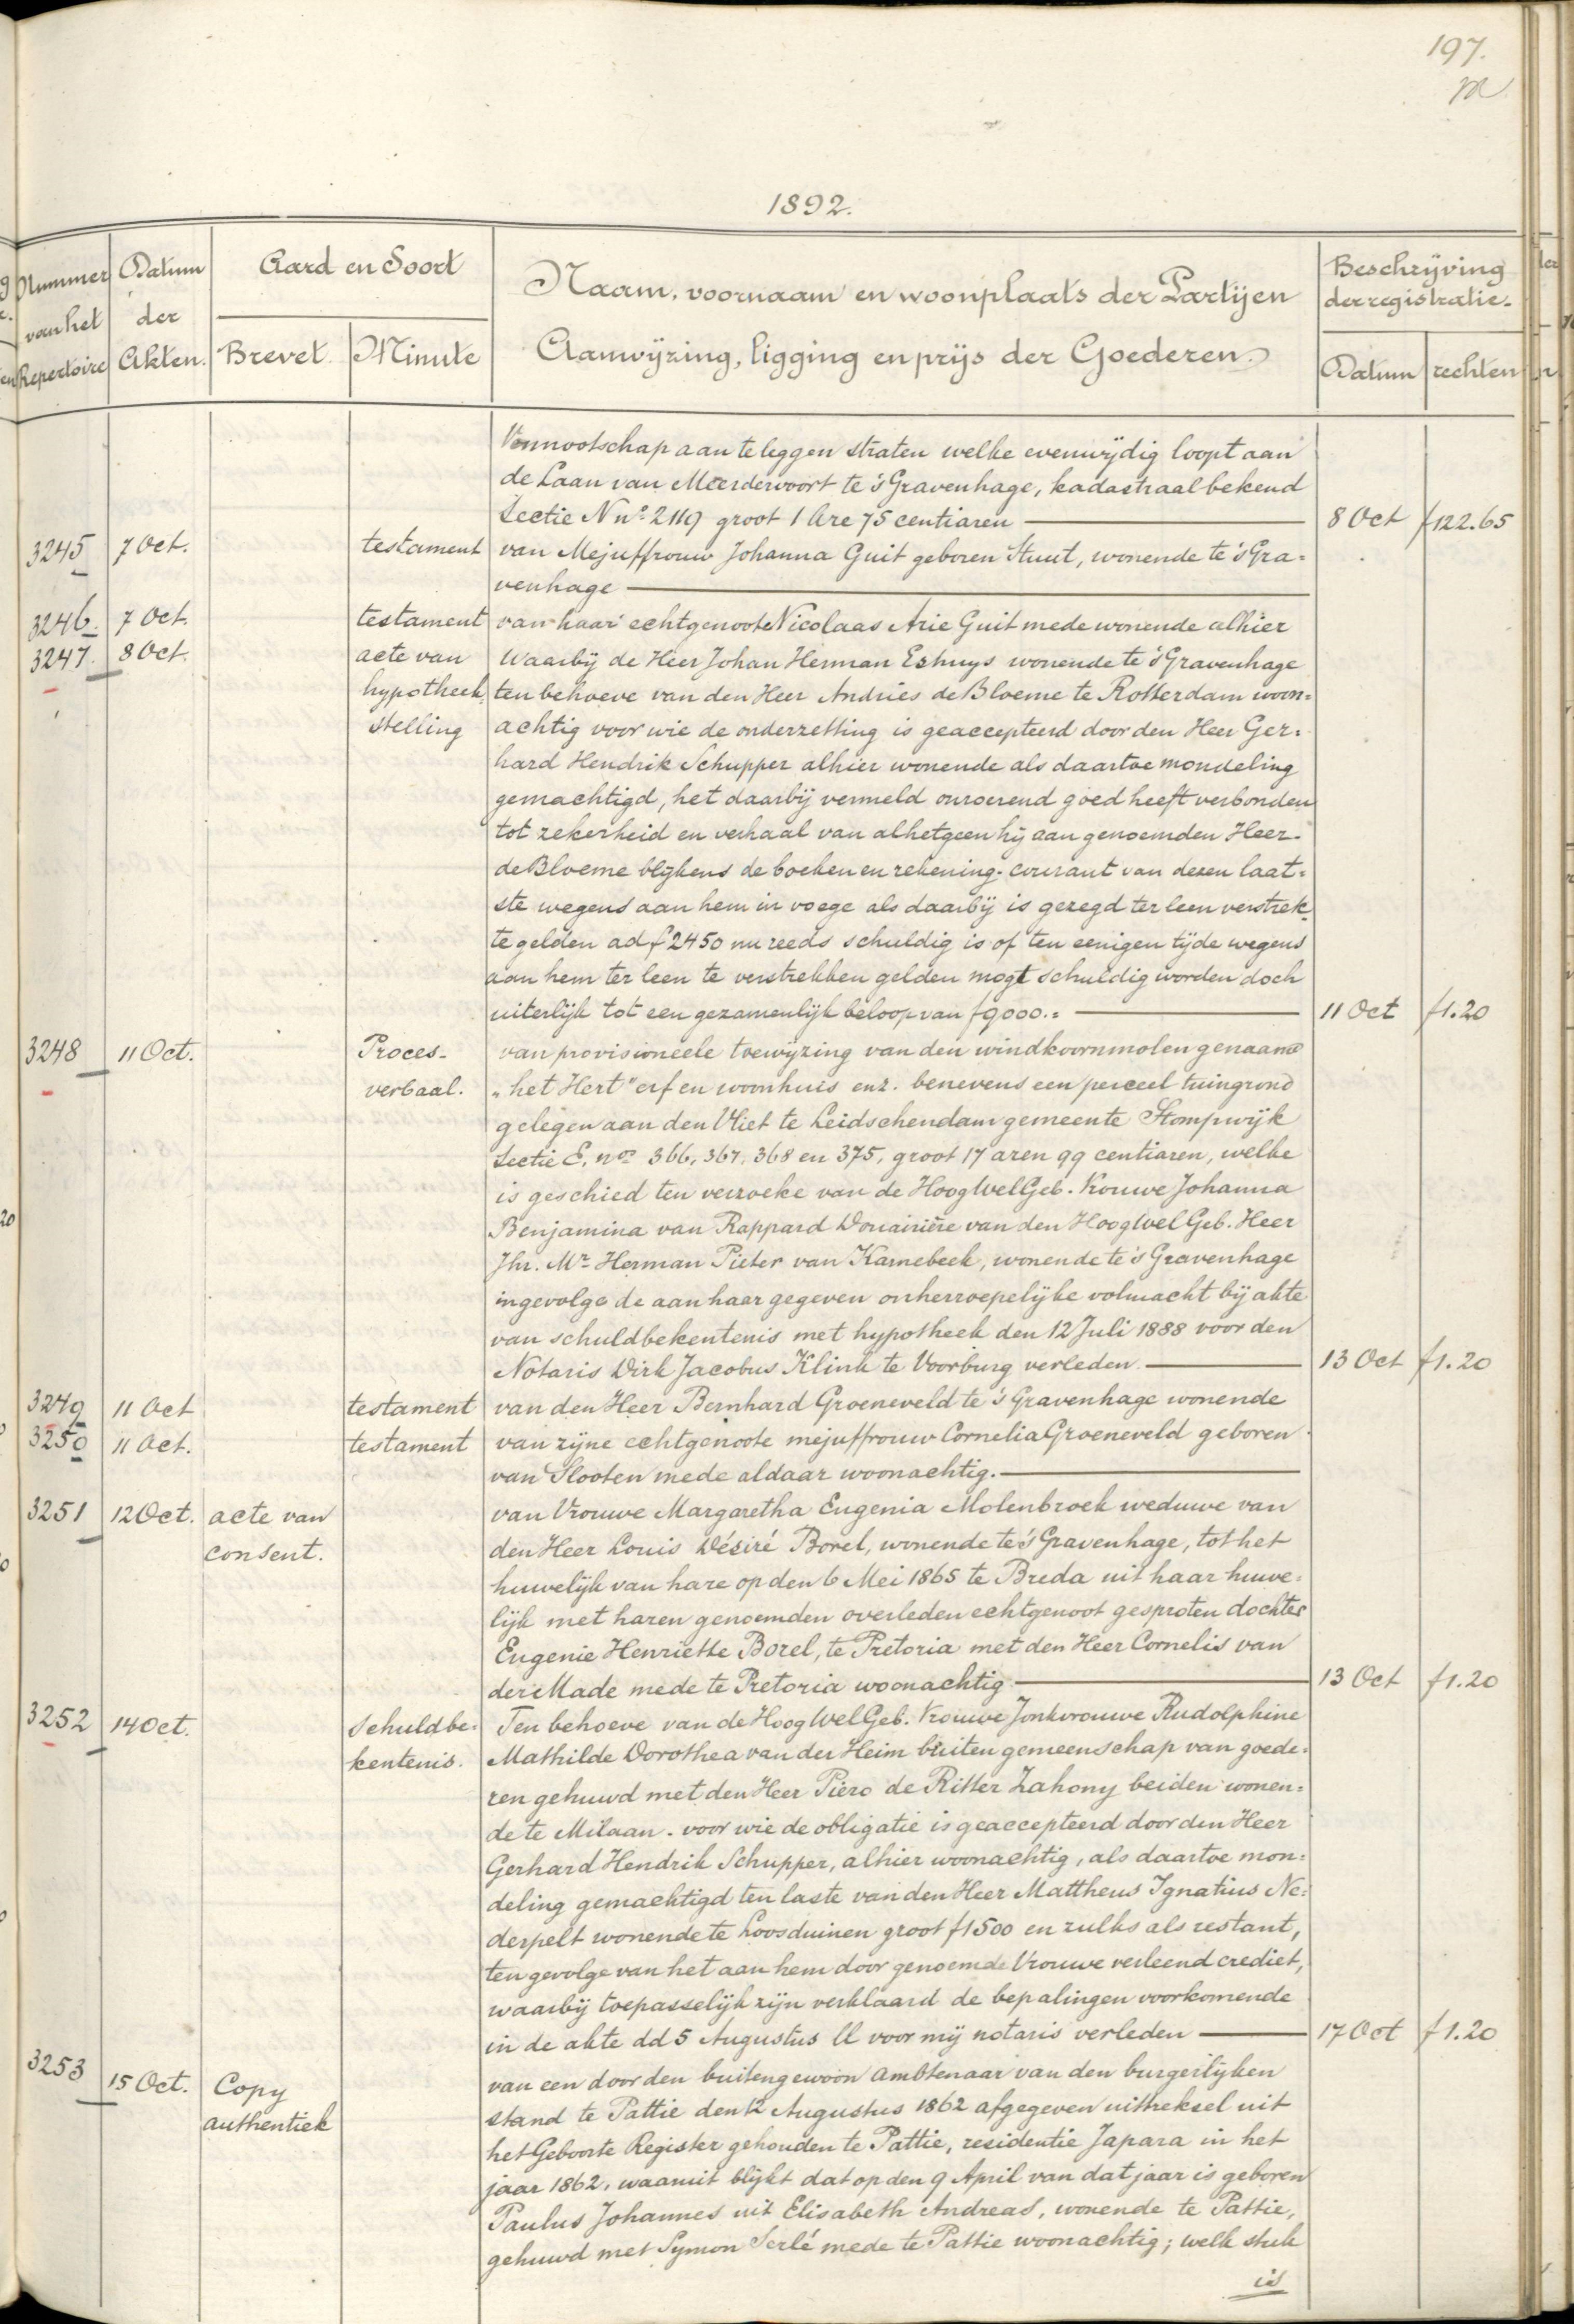 197.
1892.
Nummer van het Repertoire | Datum der Akten. | Aard en Soort | Brevet | Minute | Naam, voornaam en woonplaats der Partijen Aanwijzing, ligging en prijs der Goederen. | Beschrijving der registratie. | Datum | rechten
Vennootschap aan te leggen straten welke evenwijdig loopt aan
de Laan van Meerdervoort te 's Gravenhage, kadastraal bekend
Sectie N no. 2119 groot 1 Are 75 centiaren 8 Oct f122.65
3245 7 Oct. testament van Mejuffrouw Johanna Guit geboren Stuut, wonende te 's Gra=
venhage
3246. 7 Oct. testament van haar echtgenoote Nicolaas Arie Guit mede wonende alhier
3247. 8 Oct. acte van Waarbij de Heer Johan Herman Eshuys wonende te 's Gravenhage
hypotheek ten behoeve van den Heer Andries de Bloeme te Rotterdam woon=
stelling achtig voor wie de onderzetting is geaccepteerd door den Heer Ger=
hard Hendrik Schupper alhier wonende als daartoe mondeling
gemachtigd, het daarbij vermeld onroerend goed heeft verbonden
tot zekerheid en verhaal van alhetgeen hij aan genoemden Heer
de Bloeme blijkens de boeken en rekening-courant van dezen laat=
ste wegens aan hem in voege als daarbij is gezegd ter leen verstrek=
te gelden ad f2450 nu reeds schuldig is of ten eenigen tijde wegens
aan hem ter leen te verstrekken gelden mogt schuldig worden doch
uiterlijk tot een gezamenlijk beloop van f9000.= 11 Oct f1.20
3248 11 Oct. Proces- van provisioneele toewijzing van den windkoornmolen genaamd
verbaal. "het Hert" erf en woonhuis enz. benevens een perceel tuingrond
gelegen aan den Vliet te Leidschendam gemeente Stompwijk
Sectie E, nos 366, 367, 368 en 375, groot 17 aren 99 centiaren, welke
is geschied ten verzoeke van de HoogWelGeb. Vrouwe Johanna
Benjamina van Rappard Douairière van den HoogWelGeb. Heer
Jhr. Mr. Herman Pieter van Karnebeek, wonende te 's Gravenhage
ingevolge de aan haar gegeven onherroepelijke volmacht bij akte
van schuldbekentenis met hypotheek den 12 Juli 1888 voor den
Notaris Dirk Jacobus Klink te Voorburg verleden. 13 Oct f1.20
3249 11 Oct testament van den Heer Bernhard Groeneveld te 's Gravenhage wonende
3250 11 Oct. testament van zijne echtgenoote mejuffrouw Cornelia Groeneveld geboren
van Slooten mede aldaar woonachtig.
3251 12 Oct. acte van van Vrouwe Margaretha Eugenia Molenbroek weduwe van
consent. den Heer Louis Désiré Borel, wonende te 's Gravenhage, tot het
huwelijk van hare op den 6 Mei 1865 te Breda uit haar huwe=
lijk met haren genoemden overleden echtgenoot gesproten dochter
Eugenie Henriette Borel, te Pretoria met den Heer Cornelis van
der Made mede te Pretoria woonachtig 13 Oct f1.20
3252 14 Oct. Schuldbe= Ten behoeve van de HoogWelGeb. Vrouwe Jonkvrouwe Rudolphine
kentenis. Mathilde Dorothea van der Heim buiten gemeenschap van goede=
ren gehuwd met den Heer Piero de Ritter Zahony beiden wonen=
de te Milaan. voor wie de obligatie is geaccepteerd door den Heer
Gerhard Hendrik Schupper, alhier woonachtig, als daartoe mon=
deling gemachtigd ten laste van den Heer Mattheus Ignatius Ne=
derpelt wonende te Loosduinen groot f1500 en zulks als restant,
ten gevolge van het aan hem door genoemde Vrouwe verleend crediet,
waarbij toepasselijk zijn verklaard de bepalingen voorkomende
in de akte dd 5 Augustus ll voor mij notaris verleden 17 Oct f1.20
3253 15 Oct. Copy van een door den buitengewoon ambtenaar van den burgerlijken
authentiek stand te Pattie den 12 Augustus 1862 afgegeven uittreksel uit
het Geboorte Register gehouden te Pattie, residentie Japara in het
jaar 1862, waaruit blijkt dat op den 9 April van dat jaar is geboren
Paulus Johannes uit Elisabeth Andreas, wonende te Pattie,
gehuwd met Symon Serlé mede te Pattie woonachtig; welk stuk
is